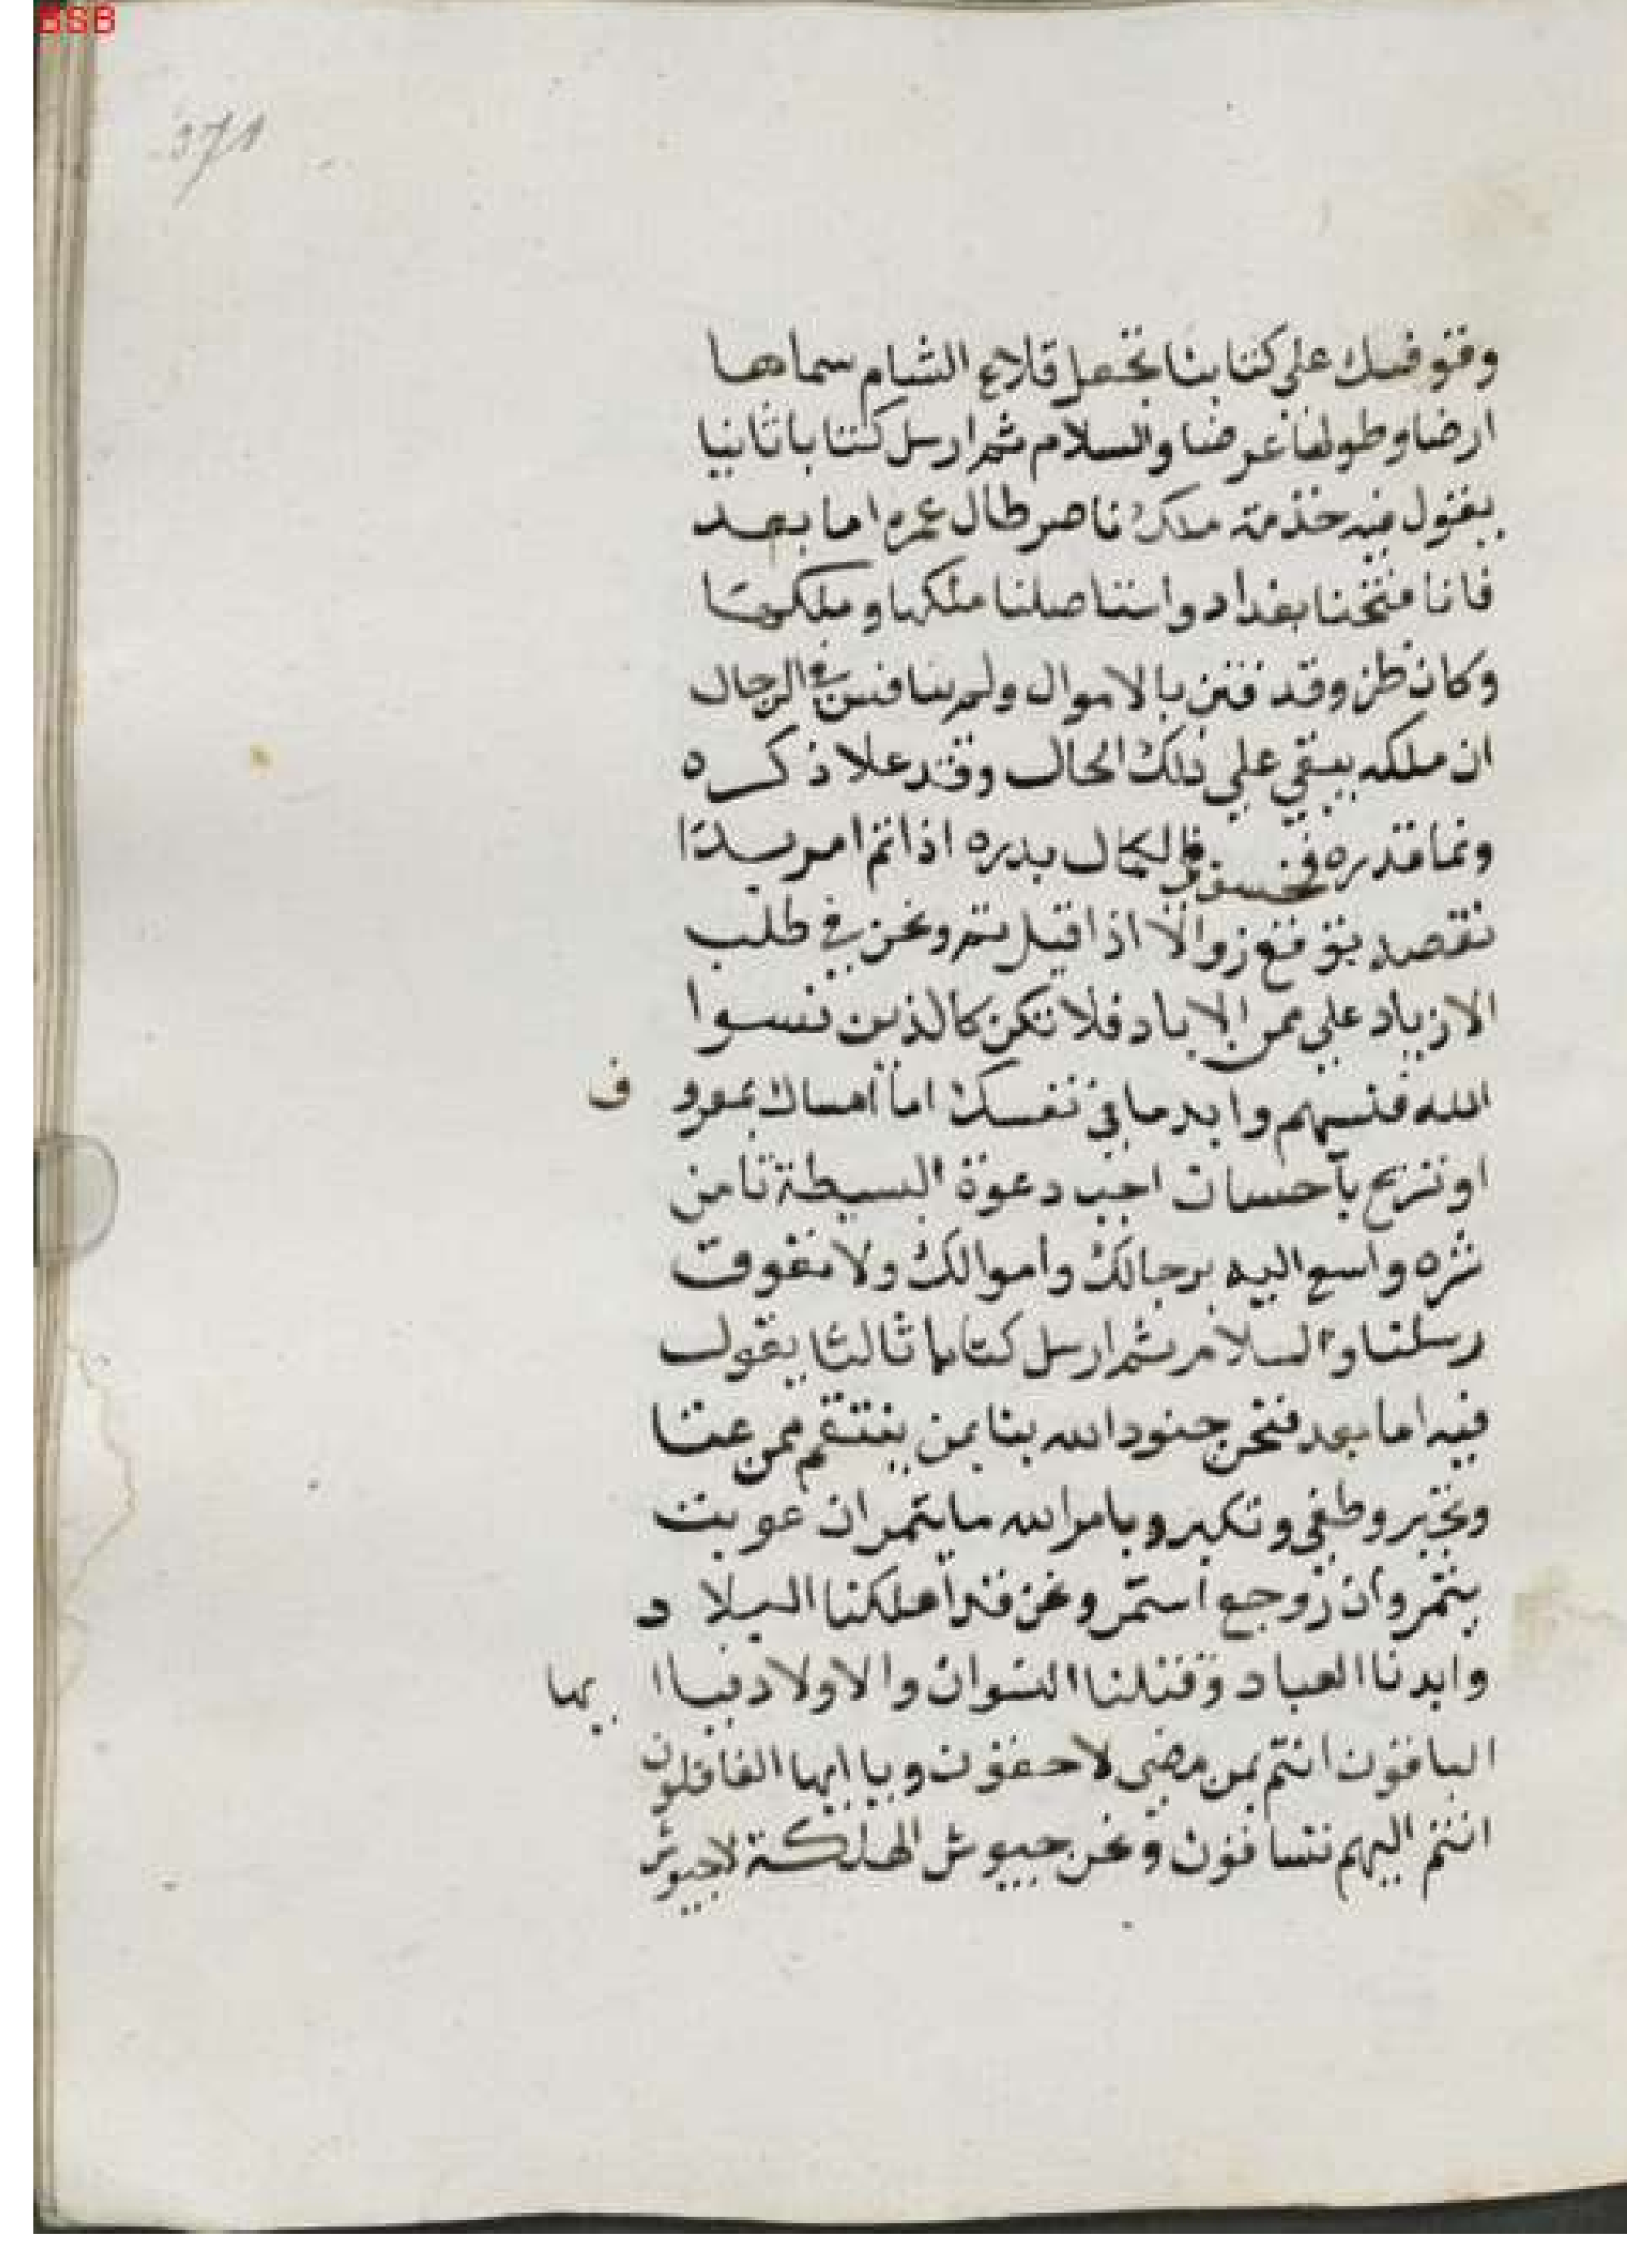 BSB
371
وقوفك على كتابنا نجعل قلاع الشام سماها
ارضا وطولها عرضا والسلام ثم ارسل كتابا ثانيا
يقول فيه خدمة ملك ناصر طال عمره اما بعد
فانا فتحنا بغداد واستاصلنا ملكها وملكها
وكان ظن وقد فتن بالاموال ولم ينافس في الرجال
ان ملكه يبقي علي ذلك الحال وقد علا ذكره
ونما قدره فخسف في الكمال بدره اذا تم امر بدا
نقصه توقع زوالا اذا قيل تم ونحن في طلب
الازياد علي ممر الاباد فلا تكن كالذين نسوا
الله فنسيهم وابد ما في نفسك اما امساك بمعروف
او تسريح باحسان اجب دعوة البسيطة تامن
شره واسع اليه برجالك واموالك ولا تعوق
رسلنا والسلام ثم ارسل كتابا ثالثا يقول
فيه اما بعد فنحن جنود الله بنا من ينتقم ممن عتا
وتجبر وطغي وتكبر وبامر الله ما يتمر ان عوتب
يتنمر وان روجع استمر ونحن قد اهلكنا البلاد
وابدنا العباد وقتلنا النسوان والاولاد فيا ايها
الباقون انتم بمن مضى لاحقون ويا ايها الغافلون
انتم اليهم تساقون ونحن جيوش الهلكة لا جيوش